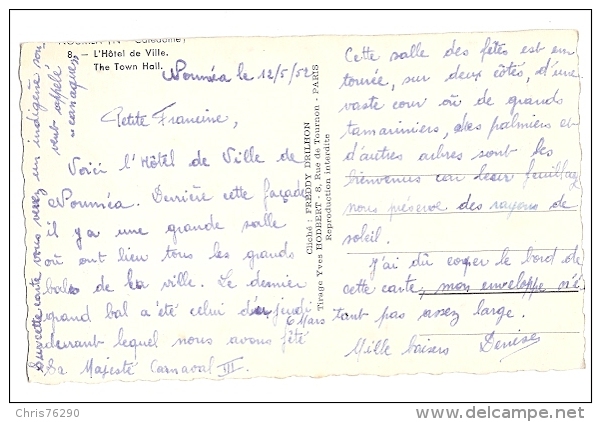 8. — L'Hôtel de Ville.
The Town Hall.
Nouméa le 12/5/52
Petite Francine,
Voici l'Hôtel de Ville de
Nouméa. Derrière cette façade
il y a une grande salle
où ont lieu tous les grands
bals de la ville. Le dernier
grand bal a été celui du jeudi
6 Mars
durant lequel nous avons fêté
Sa Majesté Carnaval III.
Sur cette carte vous verrez un indigène sou-
vent appelé
"canaque"
Cliché : FREDDY DRILHON
Tirage Yves HODBERT - 8, Rue de Tournon - PARIS
Reproduction interdite
Cette salle des fêtes est en-
tourée, sur deux côtés, d'une
vaste cour où de grands
tamariniers, des palmiers et
d'autres arbres sont les
bienvenus car leur feuillage
nous préserve des rayons de
soleil.
J'ai dû couper le bord de
cette carte, mon enveloppe n'é
tant pas assez large.
Mille baisers Denise
Chris76290
http://www.delcampe.net